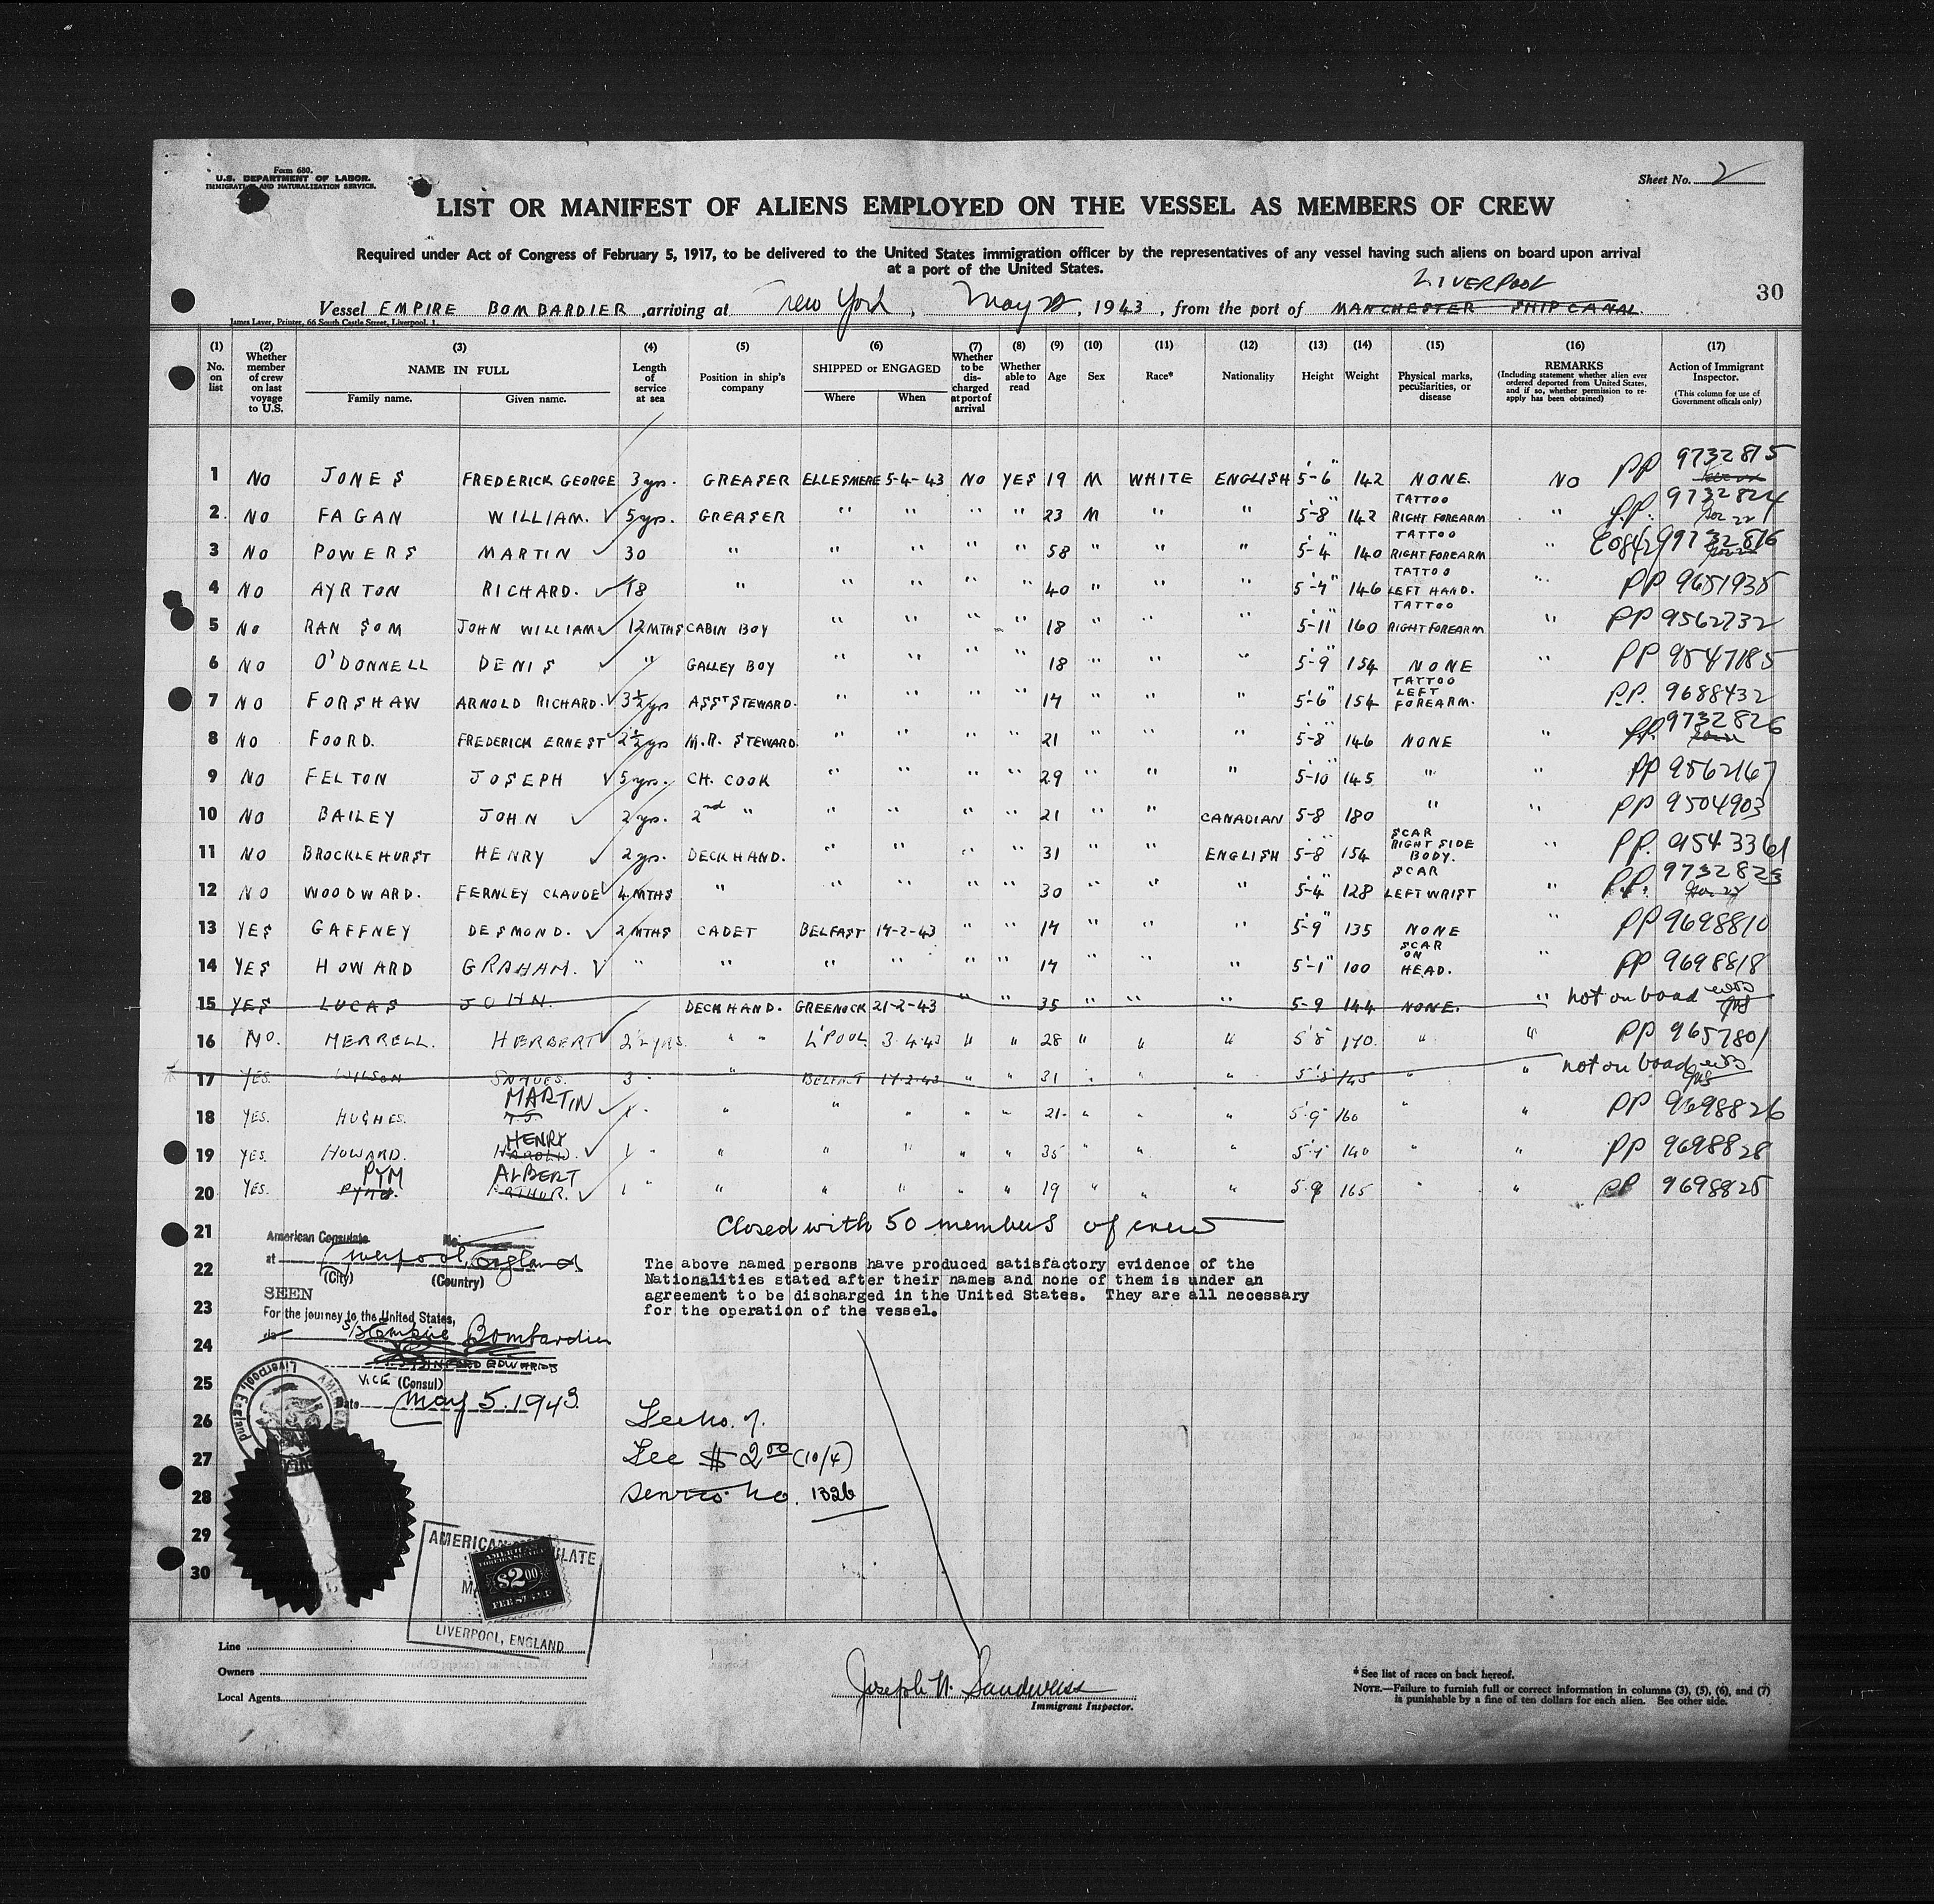 Form 680.
U.S. DEPARTMENT OF LABOR.
IMMIGRATION AND NATURALIZATION SERVICE.
Sheet No. 2
LIST OR MANIFEST OF ALIENS EMPLOYED ON THE VESSEL AS MEMBERS OF CREW
Required under Act of Congress of February 5, 1917, to be delivered to the United States immigration officer by the representatives of any vessel having such aliens on board upon arrival
at a port of the United States.
LIVERPOOL
30
Vessel EMPIRE BOMBARDIER, arriving at New York, May 22, 1943, from the port of MANCHESTER SHIP CANAL.
James Laver, Printer, 66 South Castle Street, Liverpool, 1.
(1) No. on list
(2) Whether member of crew on last voyage to U.S.
(3) NAME IN FULL Family name. Given name.
(4) Length of service at sea
(5) Position in ship's company
(6) SHIPPED or ENGAGED Where When
(7) Whether to be discharged at port of arrival
(8) Whether able to read
(9) Age
(10) Sex
(11) Race*
(12) Nationality
(13) Height
(14) Weight
(15) Physical marks, peculiarities, or disease
(16) REMARKS (Including statement whether alien ever ordered deported from United States, and if so, whether permission to re-apply has been obtained)
(17) Action of Immigrant Inspector. (This column for use of Government officials only)
1 NO JONES FREDERICK GEORGE 3 yrs. GREASER ELLESMERE 5-4-43 NO YES 19 M WHITE ENGLISH 5'-6" 142 NONE. NO PP 9732815
2. NO FAGAN WILLIAM. 5 yrs. GREASER " " " " 23 M " " 5'-8" 142 TATTOO RIGHT FOREARM " P.P. 9732824
3 NO POWERS MARTIN 30 " " " " " 58 " " " 5'-4" 140 TATTOO RIGHT FOREARM " 9732816
4 NO AYRTON RICHARD. 18 " " " " " 40 " " " 5'-7" 146 TATTOO LEFT HAND. " PP 9651935
5 NO RANSOM JOHN WILLIAM 12 MTHS CABIN BOY " " " " 18 " " " 5'-11" 160 TATTOO RIGHT FOREARM " PP 9562732
6 NO O'DONNELL DENIS " GALLEY BOY " " " " 18 " " " 5'-9" 154 NONE " PP 9547185
7 NO FORSHAW ARNOLD RICHARD. 3½ yrs ASST STEWARD. " " " " 17 " " " 5'-6" 154 TATTOO LEFT FOREARM. P.P. 9688432
8 NO FOORD. FREDERICK ERNEST 2½ yrs M.R. STEWARD. " " " " 21 " " " 5'-8" 146 NONE " P.P. 9732826
9 NO FELTON JOSEPH 5 yrs. CH. COOK " " " " 29 " " " 5'-10" 145 " " PP 9562167
10 NO BAILEY JOHN 2 yrs. 2nd " " " " " 21 " " CANADIAN 5-8 180 " " PP 9504903
11 NO BROCKLEHURST HENRY 2 yrs. DECK HAND. " " " " 31 " " ENGLISH 5'-8" 154 SCAR RIGHT SIDE BODY. " PP. 9543361
12 NO WOODWARD. FERNLEY CLAUDE 4 MTHS " " " " " 30 " " " 5'-4" 128 SCAR LEFT WRIST " P.P. 9732823
13 YES GAFFNEY DESMOND. 2 MTHS CADET BELFAST 17-2-43 " " 17 " " " 5'-9" 135 NONE " PP 9698810
14 YES HOWARD GRAHAM. " " " " " " 17 " " " 5'-1" 100 SCAR ON HEAD. " PP 9698818
15 YES LUCAS JOHN. DECK HAND. GREENOCK 21-2-43 " " 35 " " " 5-9 144 NONE. " not on board
16 NO. MERRELL. HERBERT 2½ YRS. " " L'POOL 3.4.43 " " 28 " " " 5'8 170. " " PP 9657801
17 YES. WILSON 3 " " BELFAST 17.2.43 " " 31 " " 5'5 145 " " not on board
18 YES. HUGHES. MARTIN 1 " " " " " " 21. " " " 5'9" 160 " " PP 9698826
19 YES. HOWARD. HENRY HAROLD. 1 " " " " " " 35 " " " 140 " " PP 9698828
20 YES. PYM ALBERT ARTHUR. 1 " " " " " " 19 " " " 5.9 165 " " PP 9698825
21 Closed with 50 members of crew
American Consulate No.
at Liverpool, England
(City) (Country)
22 The above named persons have produced satisfactory evidence of the
Nationalities stated after their names and none of them is under an
agreement to be discharged in the United States. They are all necessary
23 for the operation of the vessel.
SEEN
For the journey to the United States,
24 S/S Empire Bombardier
25 VICE (Consul)
Date May 5. 1943
26 Fee No. 7.
27 Fee $ 2.00 (10/4)
28 Service No. 1326
29
30
AMERICAN CONSULATE
AMERICAN
$2.00
FEE STAMP
LIVERPOOL, ENGLAND
Line
Owners
Local Agents
Joseph N. Sandweiss
Immigrant Inspector.
* See list of races on back hereof.
NOTE.—Failure to furnish full or correct information in columns (3), (5), (6), and (7)
is punishable by a fine of ten dollars for each alien. See other side.